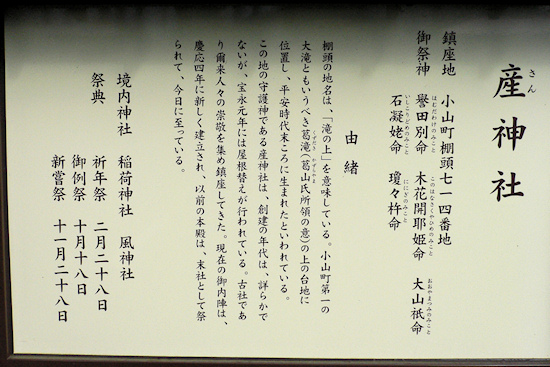 産神社
さん
鎮座地 小山町棚頭七一四番地
御祭神 譽田別命 木花開耶姫命 大山祇命
ほむだわけのみこと このはなさくやひめのみこと おおやまつみのみこと
石凝姥命 瓊々杵命
いしこりどめのみこと ににぎのみこと
由緒
棚頭の地名は、「滝の上」を意味している。小山町第一の
大滝ともいうべき葛滝(葛山氏所領の意)の上の台地に
くずだき かずらやま
位置し、平安時代末ころに生まれたといわれている。
この地の守護神である産神社は、創建の年代は、詳らかで
ないが、宝永元年には屋根替えが行われている。古社であ
り爾来人々の崇敬を集め鎮座してきた。現在の御内陣は、
慶応四年に新しく建立され、以前の本殿は、末社として祭
られて、今日に至っている。
境内神社 稲荷神社 風神社
祭典 祈年祭 二月二十八日
御例祭 十月十八日
新嘗祭 十一月二十八日